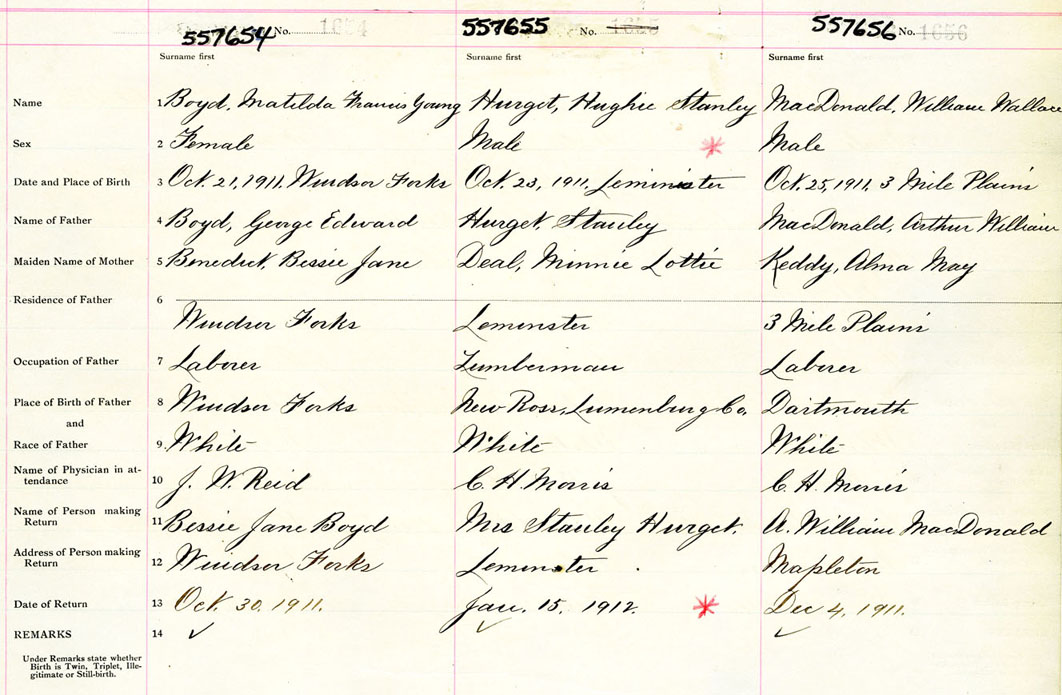 557654 No. 1654 557655 No. 1655 557656 No. 1656
Surname first Surname first Surname first
Name 1 Boyd, Matilda Francis Young Hurget, Hughie Stanley MacDonald, William Wallace
Sex 2 Female Male Male
Date and Place of Birth 3 Oct. 21, 1911. Windsor Forks Oct. 23, 1911, Leminister Oct. 25, 1911, 3 Mile Plains
Name of Father 4 Boyd, George Edward Hurget, Stanley MacDonald, Arthur William
Maiden Name of Mother 5 Benedict, Bessie Jane Deal, Minnie Lottie Keddy, Alma May
Residence of Father 6
Windsor Forks Leminster 3 Mile Plains
Occupation of Father 7 Laborer Lumberman Laborer
Place of Birth of Father 8 Windsor Forks New Ross, Lunenburg Co. Dartmouth
and
Race of Father 9. White White White
Name of Physician in at-
tendance 10 J. W. Reid C. H. Morris C. H. Morris
Name of Person making
Return 11 Bessie Jane Boyd Mrs Stanley Hurget. A. William MacDonald
Address of Person making
Return 12 Windsor Forks Leminster Mapleton
Date of Return 13 Oct. 30, 1911. Jan. 15, 1912. Dec 4, 1911.
REMARKS 14
Under Remarks state whether
Birth is Twin, Triplet, Ille-
gitimate or Still-birth.